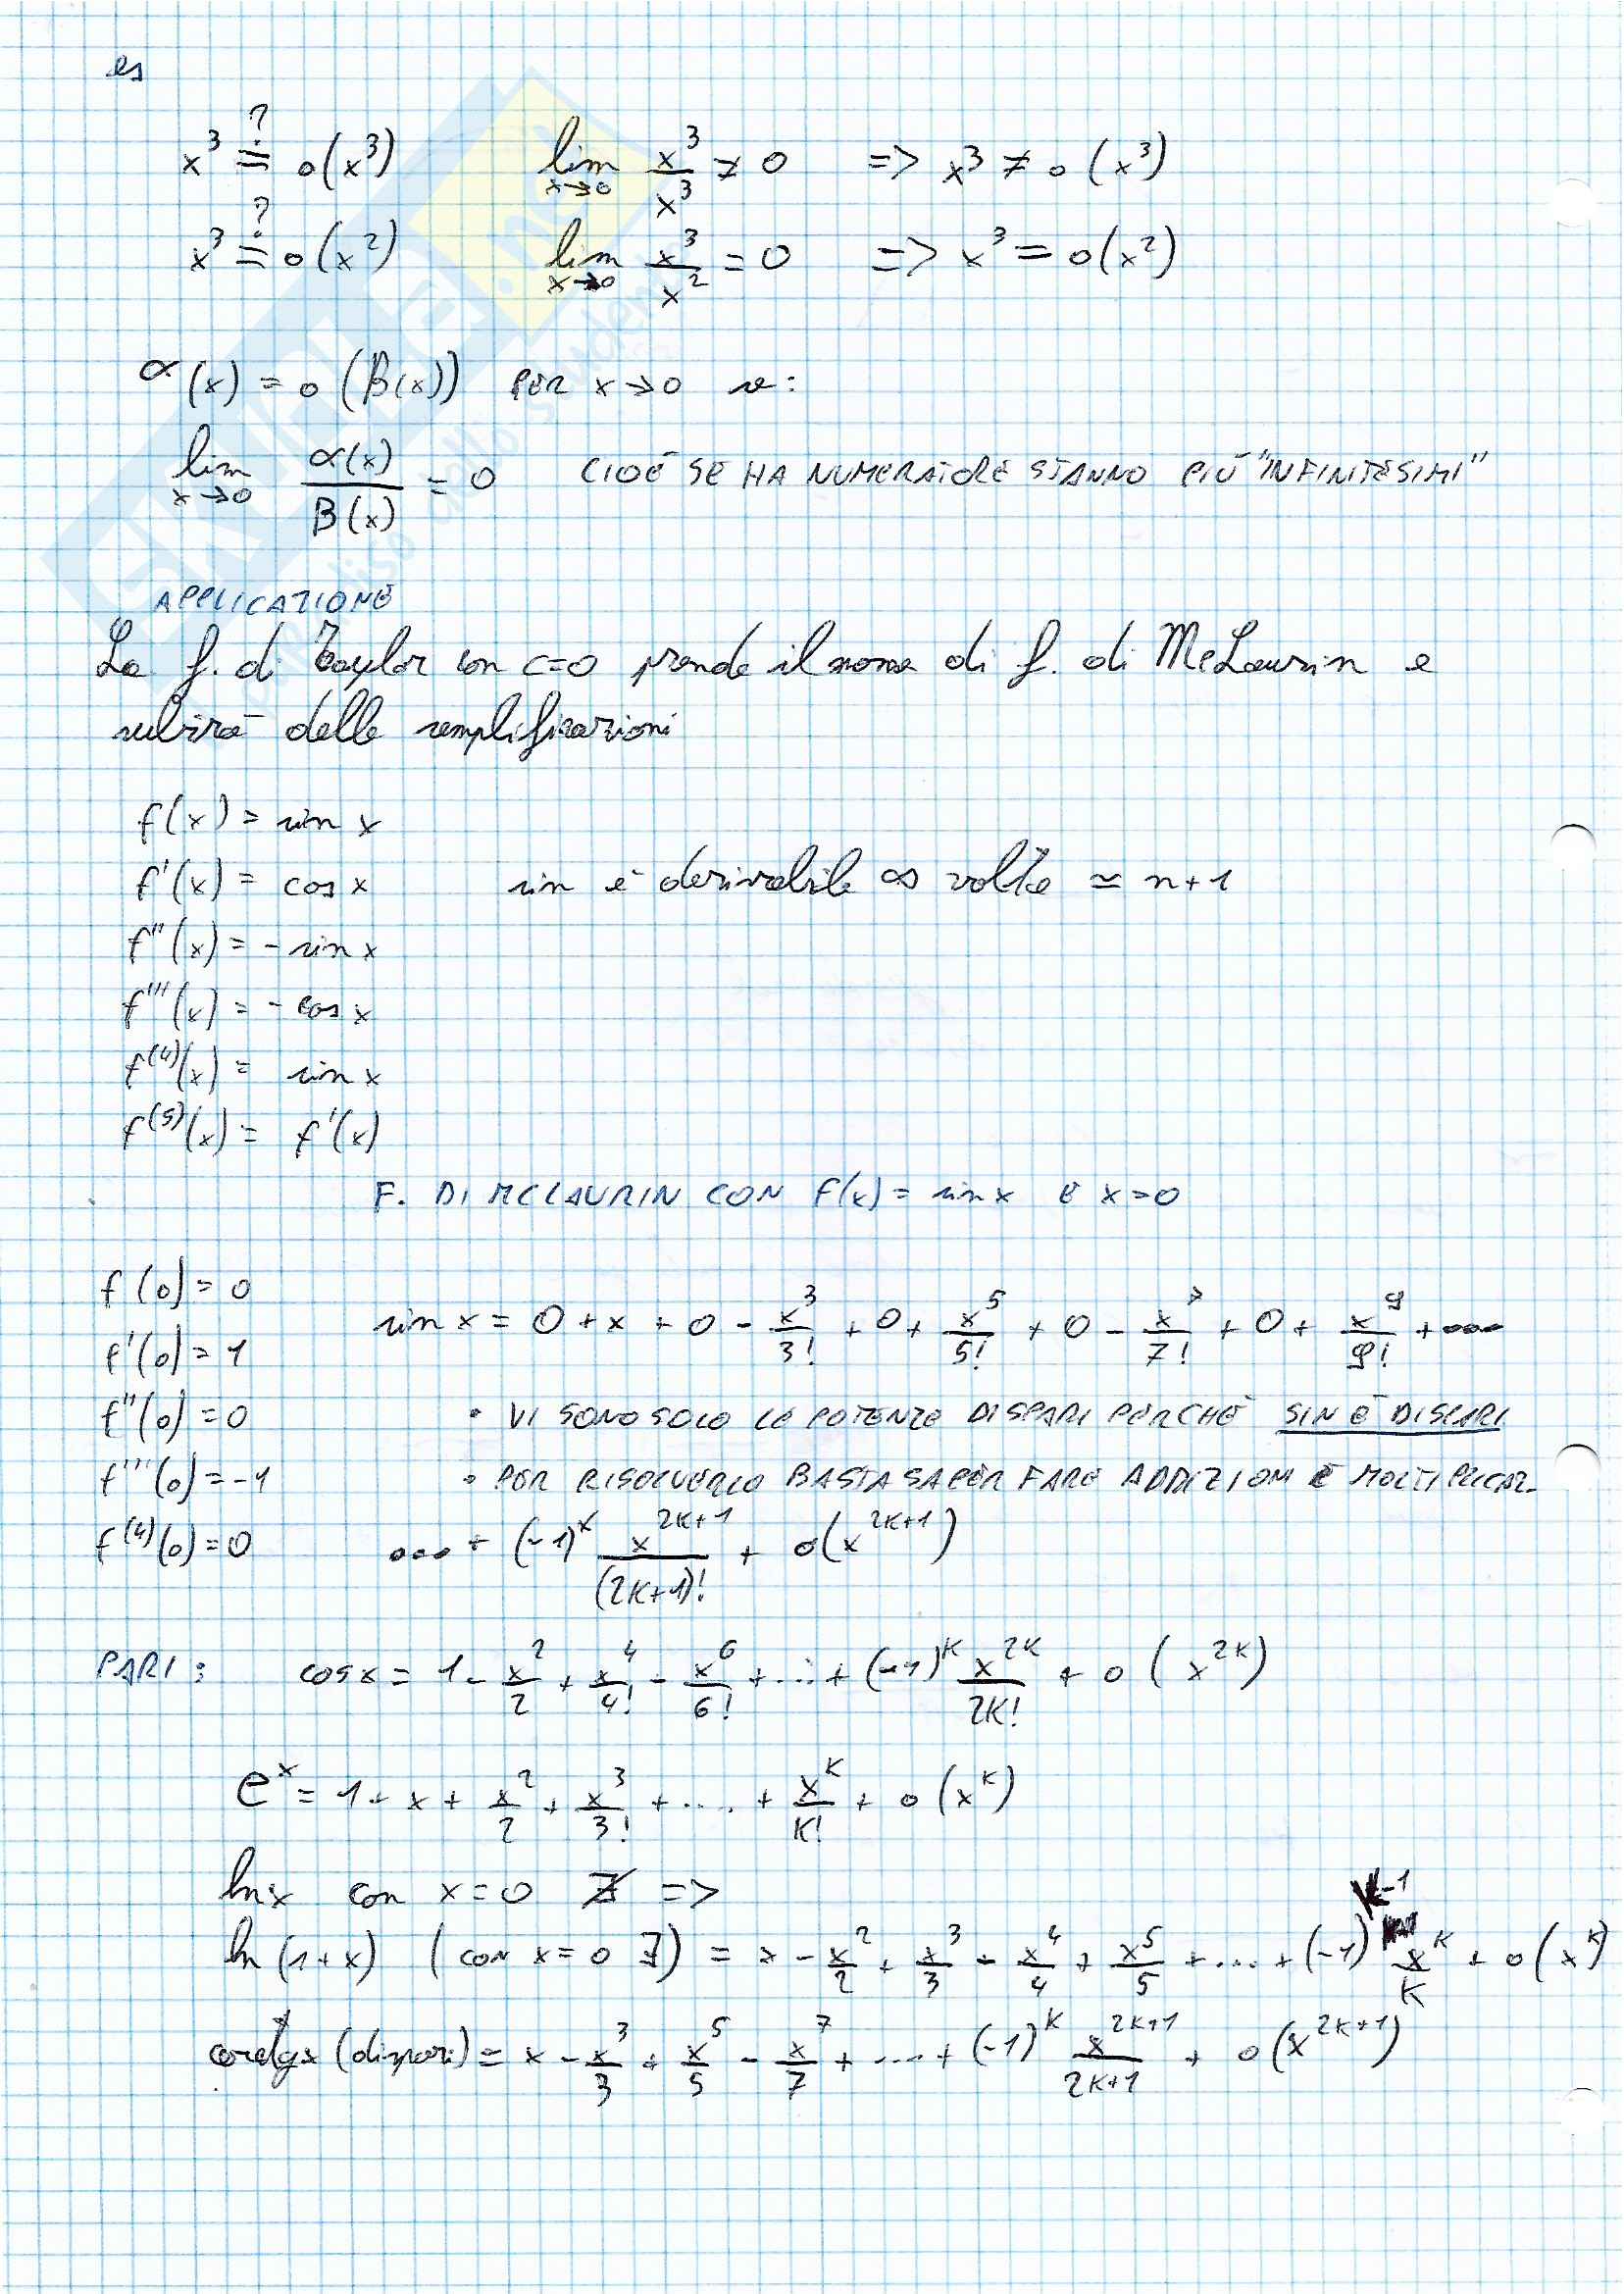 es
x³ ≟ o(x³)    lim x→0 x³/x³ ≠ 0    => x³ ≠ o(x³)
x³ ≟ o(x²)    lim x→0 x³/x² = 0    => x³ = o(x²)
α(x) = o(β(x)) PER x→0 se:
lim x→0 α(x)/β(x) = 0    CIOÈ SE HA NUMERATORE STANNO PIÙ "INFINITESIMI"
APPLICAZIONE
La f. di Taylor con c=0 prende il nome di f. di McLaurin e
subirà delle semplificazioni
f(x) = sin x
f'(x) = cos x    sin è derivabile ∞ volte ≃ n+1
f''(x) = - sin x
f'''(x) = - cos x
f⁽⁴⁾(x) = sin x
f⁽⁵⁾(x) = f'(x)
F. DI MCLAURIN CON f(x) = sin x E x=0
f(0) = 0
sin x = 0 + x + 0 - x³/3! + 0 + x⁵/5! + 0 - x⁷/7! + 0 + x⁹/9! + ...
f'(0) = 1
f''(0) = 0    • VI SONO SOLO LE POTENZE DISPARI PERCHÈ SIN È DISPARI
f'''(0) = -1    • PER RISOLVERLO BASTA SAPER FARE ADDIZIONI E MOLTIPLICAZ.
f⁽⁴⁾(0) = 0    ... + (-1)ᵏ x²ᵏ⁺¹/(2K+1)! + o(x²ᵏ⁺¹)
PARI: cos x = 1 - x²/2 + x⁴/4! - x⁶/6! + ... + (-1)ᵏ x²ᵏ/2K! + o(x²ᵏ)
eˣ = 1 + x + x²/2 + x³/3! + .... + xᵏ/K! + o(xᵏ)
ln x con x=0 ∄ =>
ln(1+x) (con x=0 ∃) = x - x²/2 + x³/3 - x⁴/4 + x⁵/5 + ... + (-1)ᵏ⁻¹ xᵏ/K + o(xᵏ)
arctgx (dispari) = x - x³/3 + x⁵/5 - x⁷/7 + ... + (-1)ᵏ x²ᵏ⁺¹/2K+1 + o(x²ᵏ⁺¹)